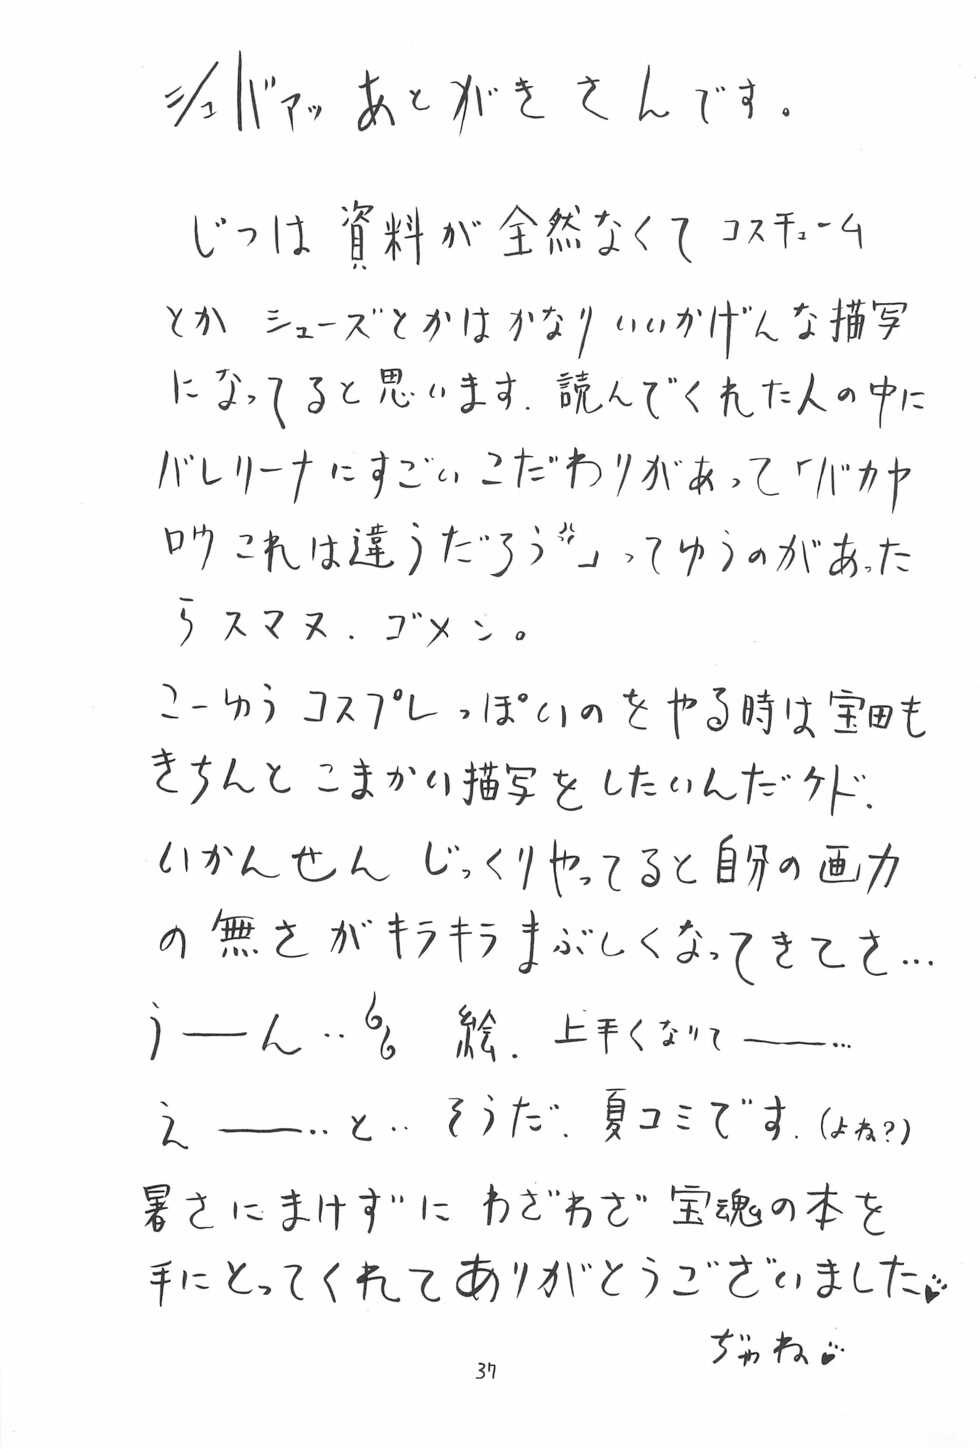 シュバァッ あとがきさんです。
じつは資料が全然なくて コスチューム
とか シューズとかはかなりいいかげんな描写
になってると思います. 読んでくれた人の中に
バレリーナにすごいこだわりがあって「バカヤ
ロウこれは違うだろう」ってゆうのがあった
らスマヌ. ゴメン。
こーゆうコスプレっぽいのをやる時は宝田も
きちんとこまかい描写をしたいんだケド.
いかんせん じっくりやってると自分の画力
の無さがキラキラまぶしくなってきてさ…
うーん‥ 絵. 上手くなりてー…
えー‥と‥ そうだ. 夏コミです. (よね?)
暑さにまけずに わざわざ 宝魂の本を
手にとってくれてありがとうございました♥
ぢゃね♥
37